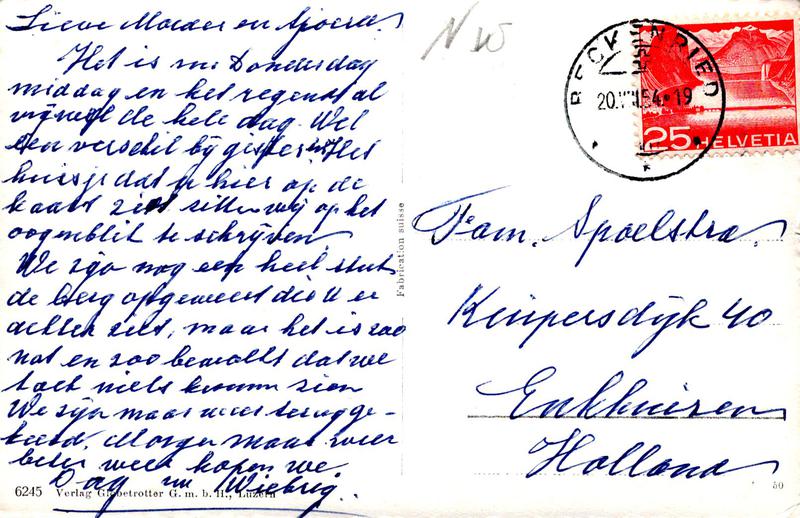 Lieve Moeder en Sjoerd.
Het is nu Donderdag
middag en het regent al
vrijwel de hele dag. Wel
een verschil bij gisteren. Het
huisje dat u hier op de
kaart ziet zitten wij op het
oogenblik te schrijven.
We zijn nog een heel stuk
de berg opgeweest die U er
achter ziet, maar het is zoo
nat en zoo bewolkt dat we
toch niets konden zien
We zijn maar weer terugge-
keerd. Morgen maar weer
beter weer hopen we
Dag nu Wiebrig.
6245 Verlag Globetrotter G. m. b. H., Luzern
Fabrication suisse
N W
BECKENRIED
20.VIII.54-19
25 HELVETIA
Fam. Spoelstra.
Kuipersdijk 40
Enkhuizen
Holland
50